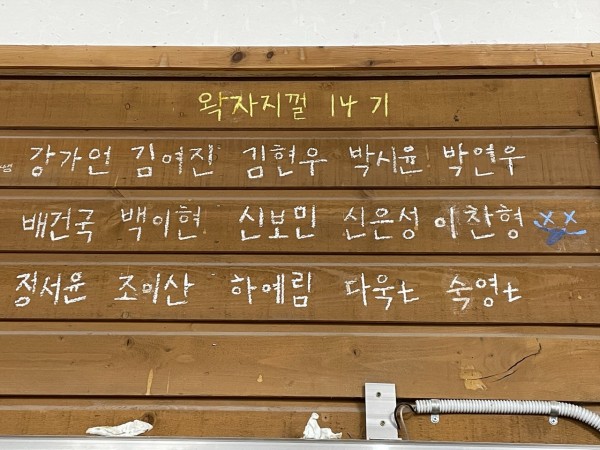 왁자지껄 14기
쌤 강가언 김여진 김현우 박시윤 박연우
배건국 백이현 신보민 신은성 이찬형
정서윤 조이산 하예림 다욱t 숙영t